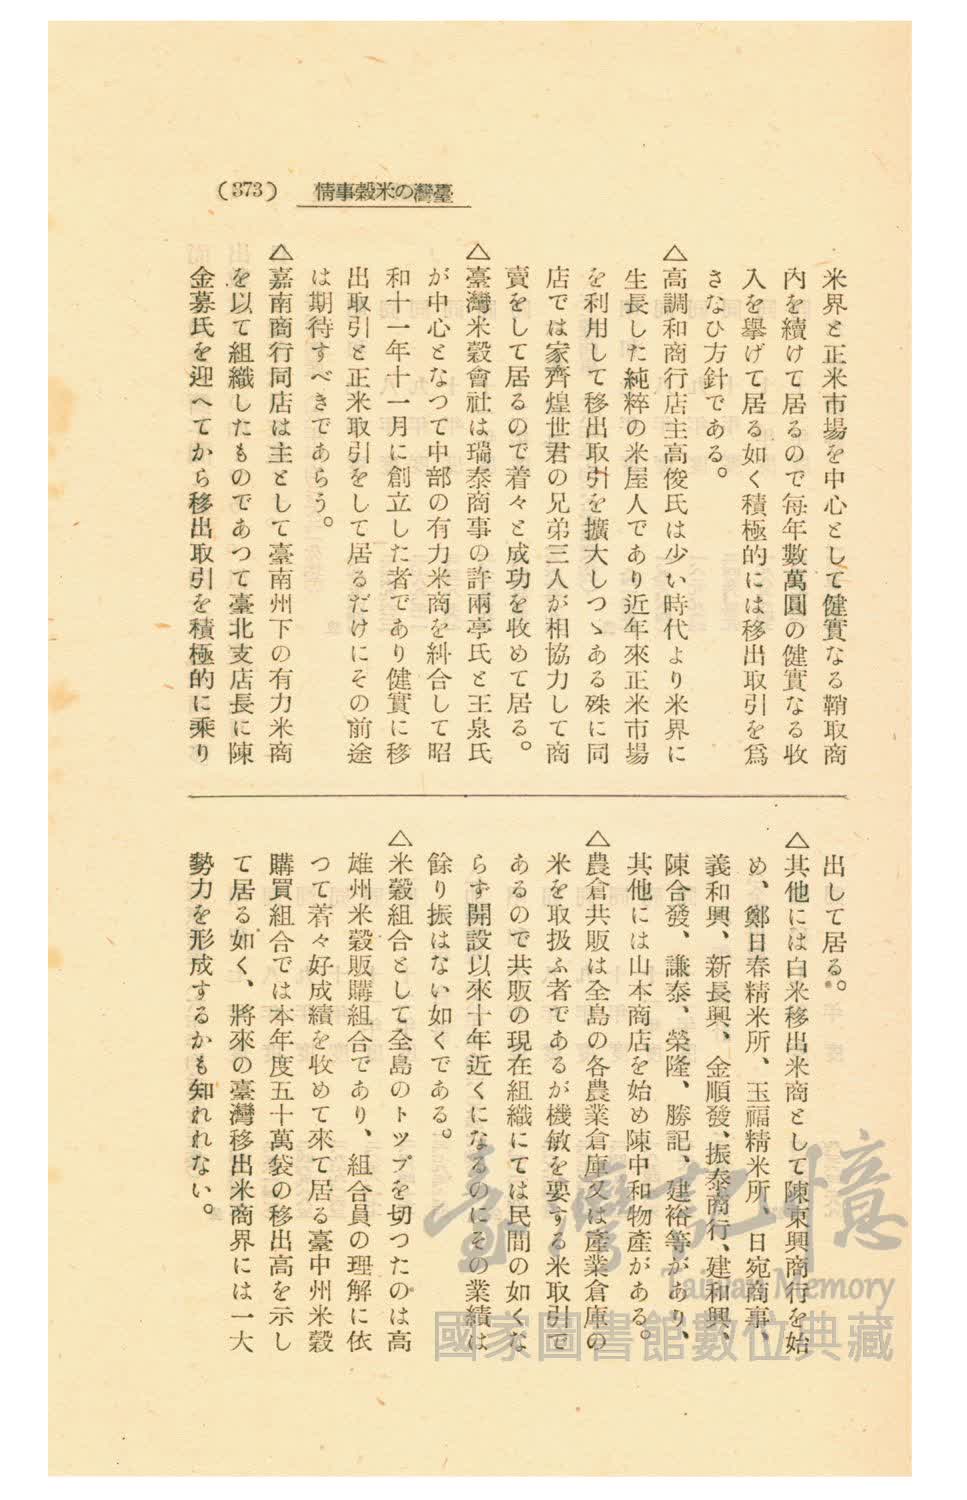 (373) 情事穀米の灣臺
米界と正米市場を中心として健實なる鞘取商
内を續けて居るので每年數萬圓の健實なる收
入を擧げて居る如く積極的には移出取引を爲
さなひ方針である。
△高調和商行店主高俊氏は少い時代より米界に
生長した純粹の米屋人であり近年來正米市場
を利用して移出取引を擴大しつゝある殊に同
店では家齊煌世君の兄弟三人が相協力して商
賣をして居るので着々と成功を收めて居る。
△臺灣米穀會社は瑞泰商事の許兩亭氏と王泉氏
が中心となつて中部の有力米商を糾合して昭
和十一年十一月に創立した者であり健實に移
出取引と正米取引をして居るだけにその前途
は期待すべきであらう。
△嘉南商行同店は主として臺南州下の有力米商
を以て組織したものであつて臺北支店長に陳
金募氏を迎へてから移出取引を積極的に乘り
出して居る。
△其他には白米移出米商として陳東興商行を始
め、鄭日春精米所、玉福精米所、日宛商事、
義和興、新長興、金順發、振泰商行、建和興、
陳合發、謙泰、榮隆、勝記、建裕等があり、
其他には山本商店を始め陳中和物產がある。
△農倉共販は全島の各農業倉庫又は產業倉庫の
米を取扱ふ者であるが機敏を要する米取引で
あるので共販の現在組織にては民間の如くな
らず開設以來十年近くになるのにその業績は
餘り振はない如くである。
△米穀組合として全島のトツプを切つたのは高
雄州米穀販購組合であり、組合員の理解に依
つて若々好成績を收めて來て居る臺中州米穀
購買組合では本年度五十萬袋の移出高を示し
て居る如く、將來の臺灣移出米商界には一大
勢力を形成するかも知れれない。
臺灣記憶
Taiwan Memory
國家圖書館數位典藏